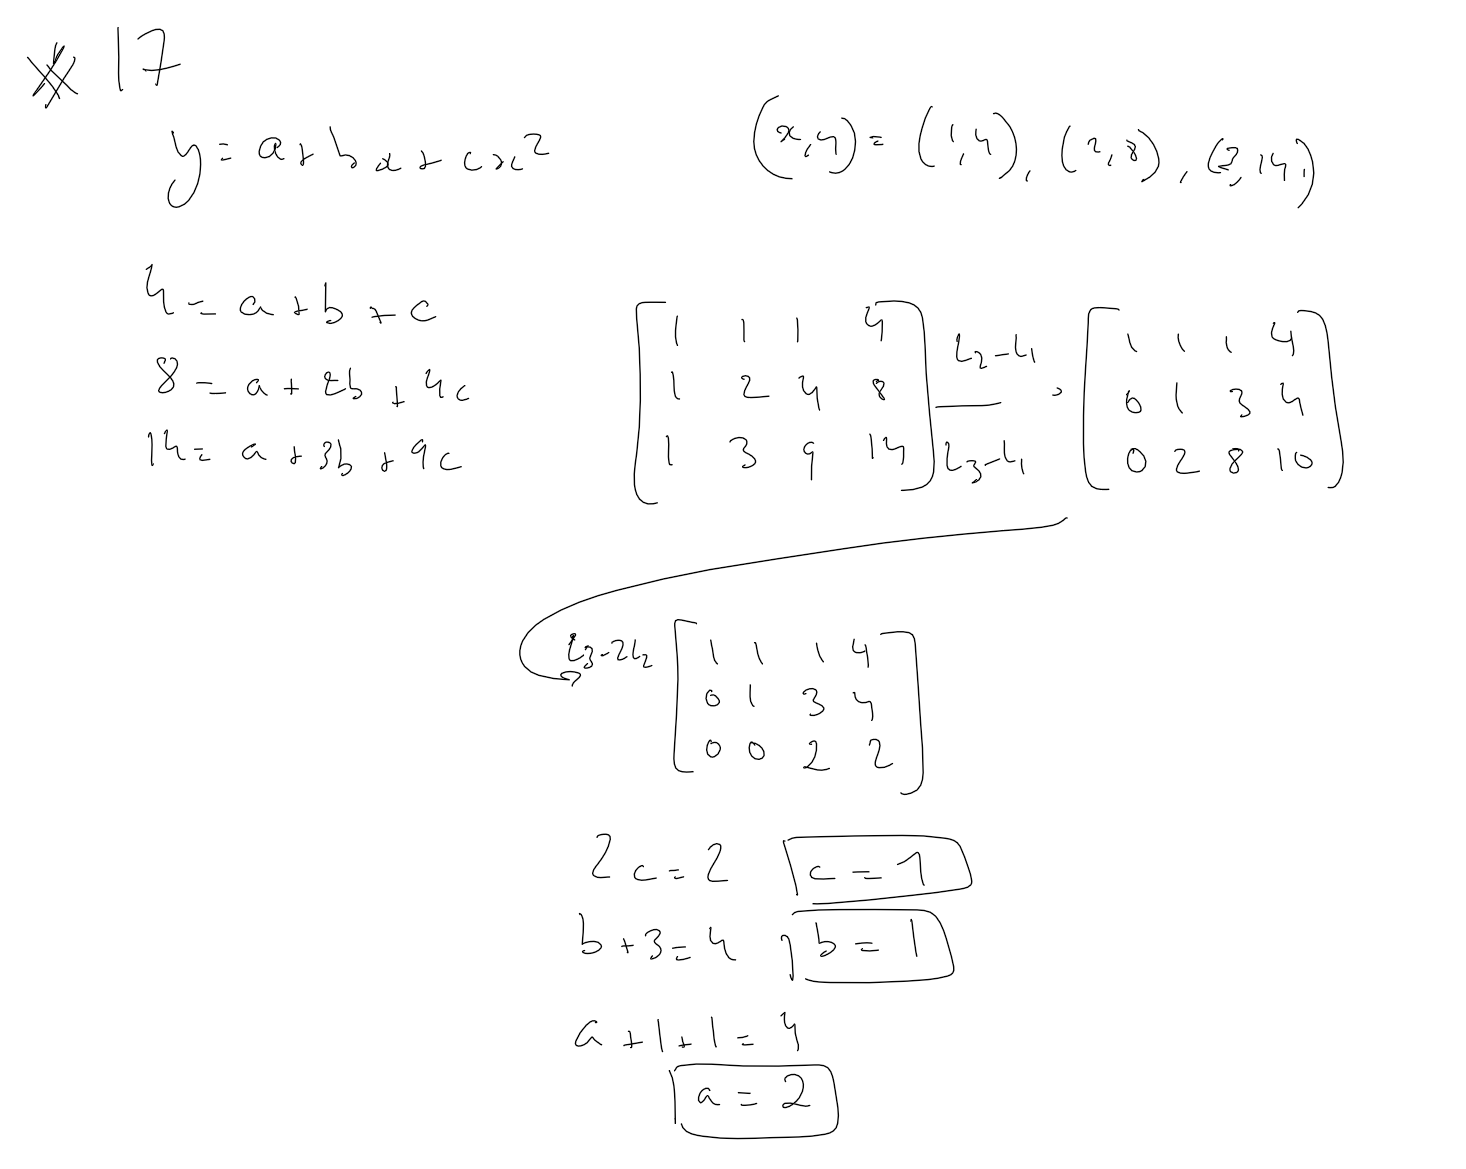 17
y = a + bx + cx²
(x,y) = (1,4), (2,8), (3,14)
4 = a + b + c
8 = a + 2b + 4c
14 = a + 3b + 9c
1 1 1 4
1 2 4 8
1 3 9 14
L2-L1
L3-L1
1 1 1 4
0 1 3 4
0 2 8 10
L3-2L2
1 1 1 4
0 1 3 4
0 0 2 2
2c = 2 c = 1
b + 3 = 4 b = 1
a + 1 + 1 = 4
a = 2